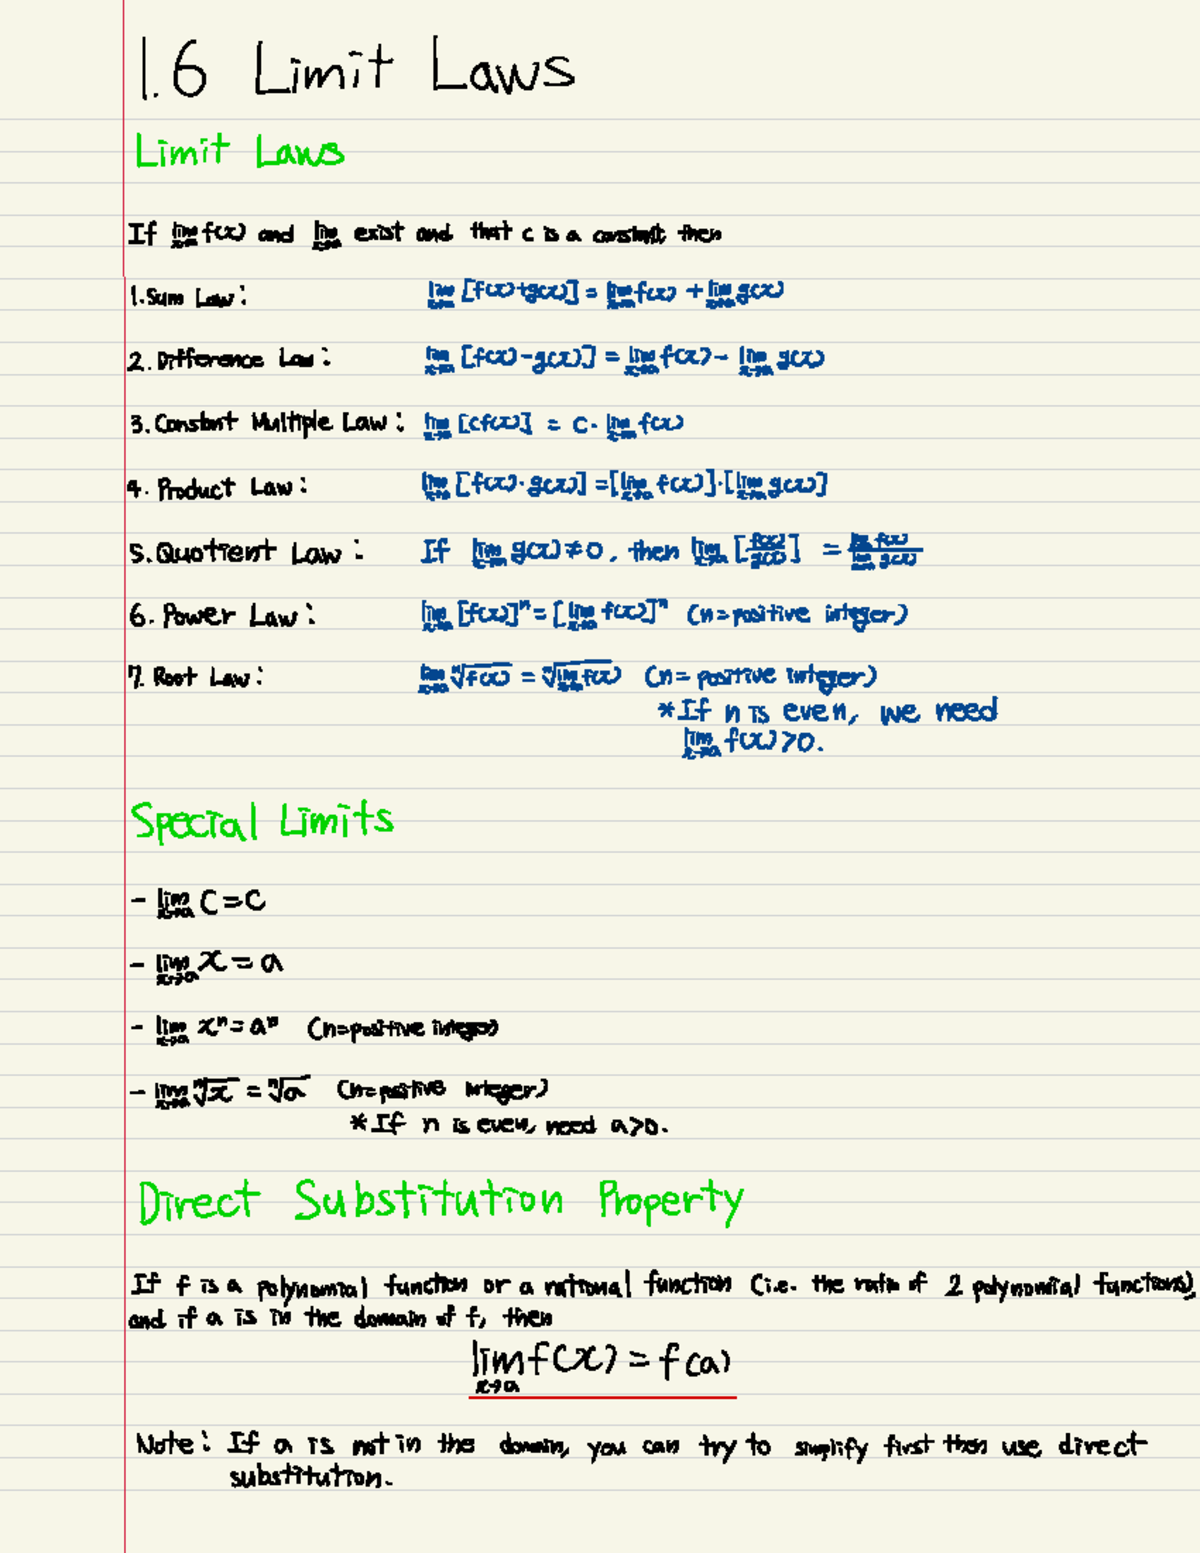 1.6 Limit Laws
Limit Laws
If lim x→a f(x) and lim x→a exist and that c is a constant then
1. Sum Law: lim x→a [f(x)+g(x)] = lim x→a f(x) + lim x→a g(x)
2. Difference Law: lim x→a [f(x)-g(x)] = lim x→a f(x) - lim x→a g(x)
3. Constant Multiple Law: lim x→a [cf(x)] = c· lim x→a f(x)
4. Product Law: lim x→a [f(x)·g(x)] = [lim x→a f(x)]·[lim x→a g(x)]
5. Quotient Law: If lim x→a g(x) ≠ 0, then lim x→a [f(x)/g(x)] = lim x→a f(x) / lim x→a g(x)
6. Power Law: lim x→a [f(x)]ⁿ = [lim x→a f(x)]ⁿ (n=positive integer)
7. Root Law: lim x→a ⁿ√f(x) = ⁿ√lim x→a f(x) (n= positive integer)
*If n is even, we need
lim x→a f(x) >0.
Special Limits
- lim x→a C = C
- lim x→a x = a
- lim x→a xⁿ = aⁿ (n=positive integer)
- lim x→a ⁿ√x = ⁿ√a (n=positive integer)
*If n is even, need a>0.
Direct Substitution Property
If f is a polynomial function or a rational function (i.e. the ratio of 2 polynomial functions),
and if a is in the domain of f, then
lim x→a f(x) = f(a)
Note: If a is not in the domain, you can try to simplify first then use direct
substitution.